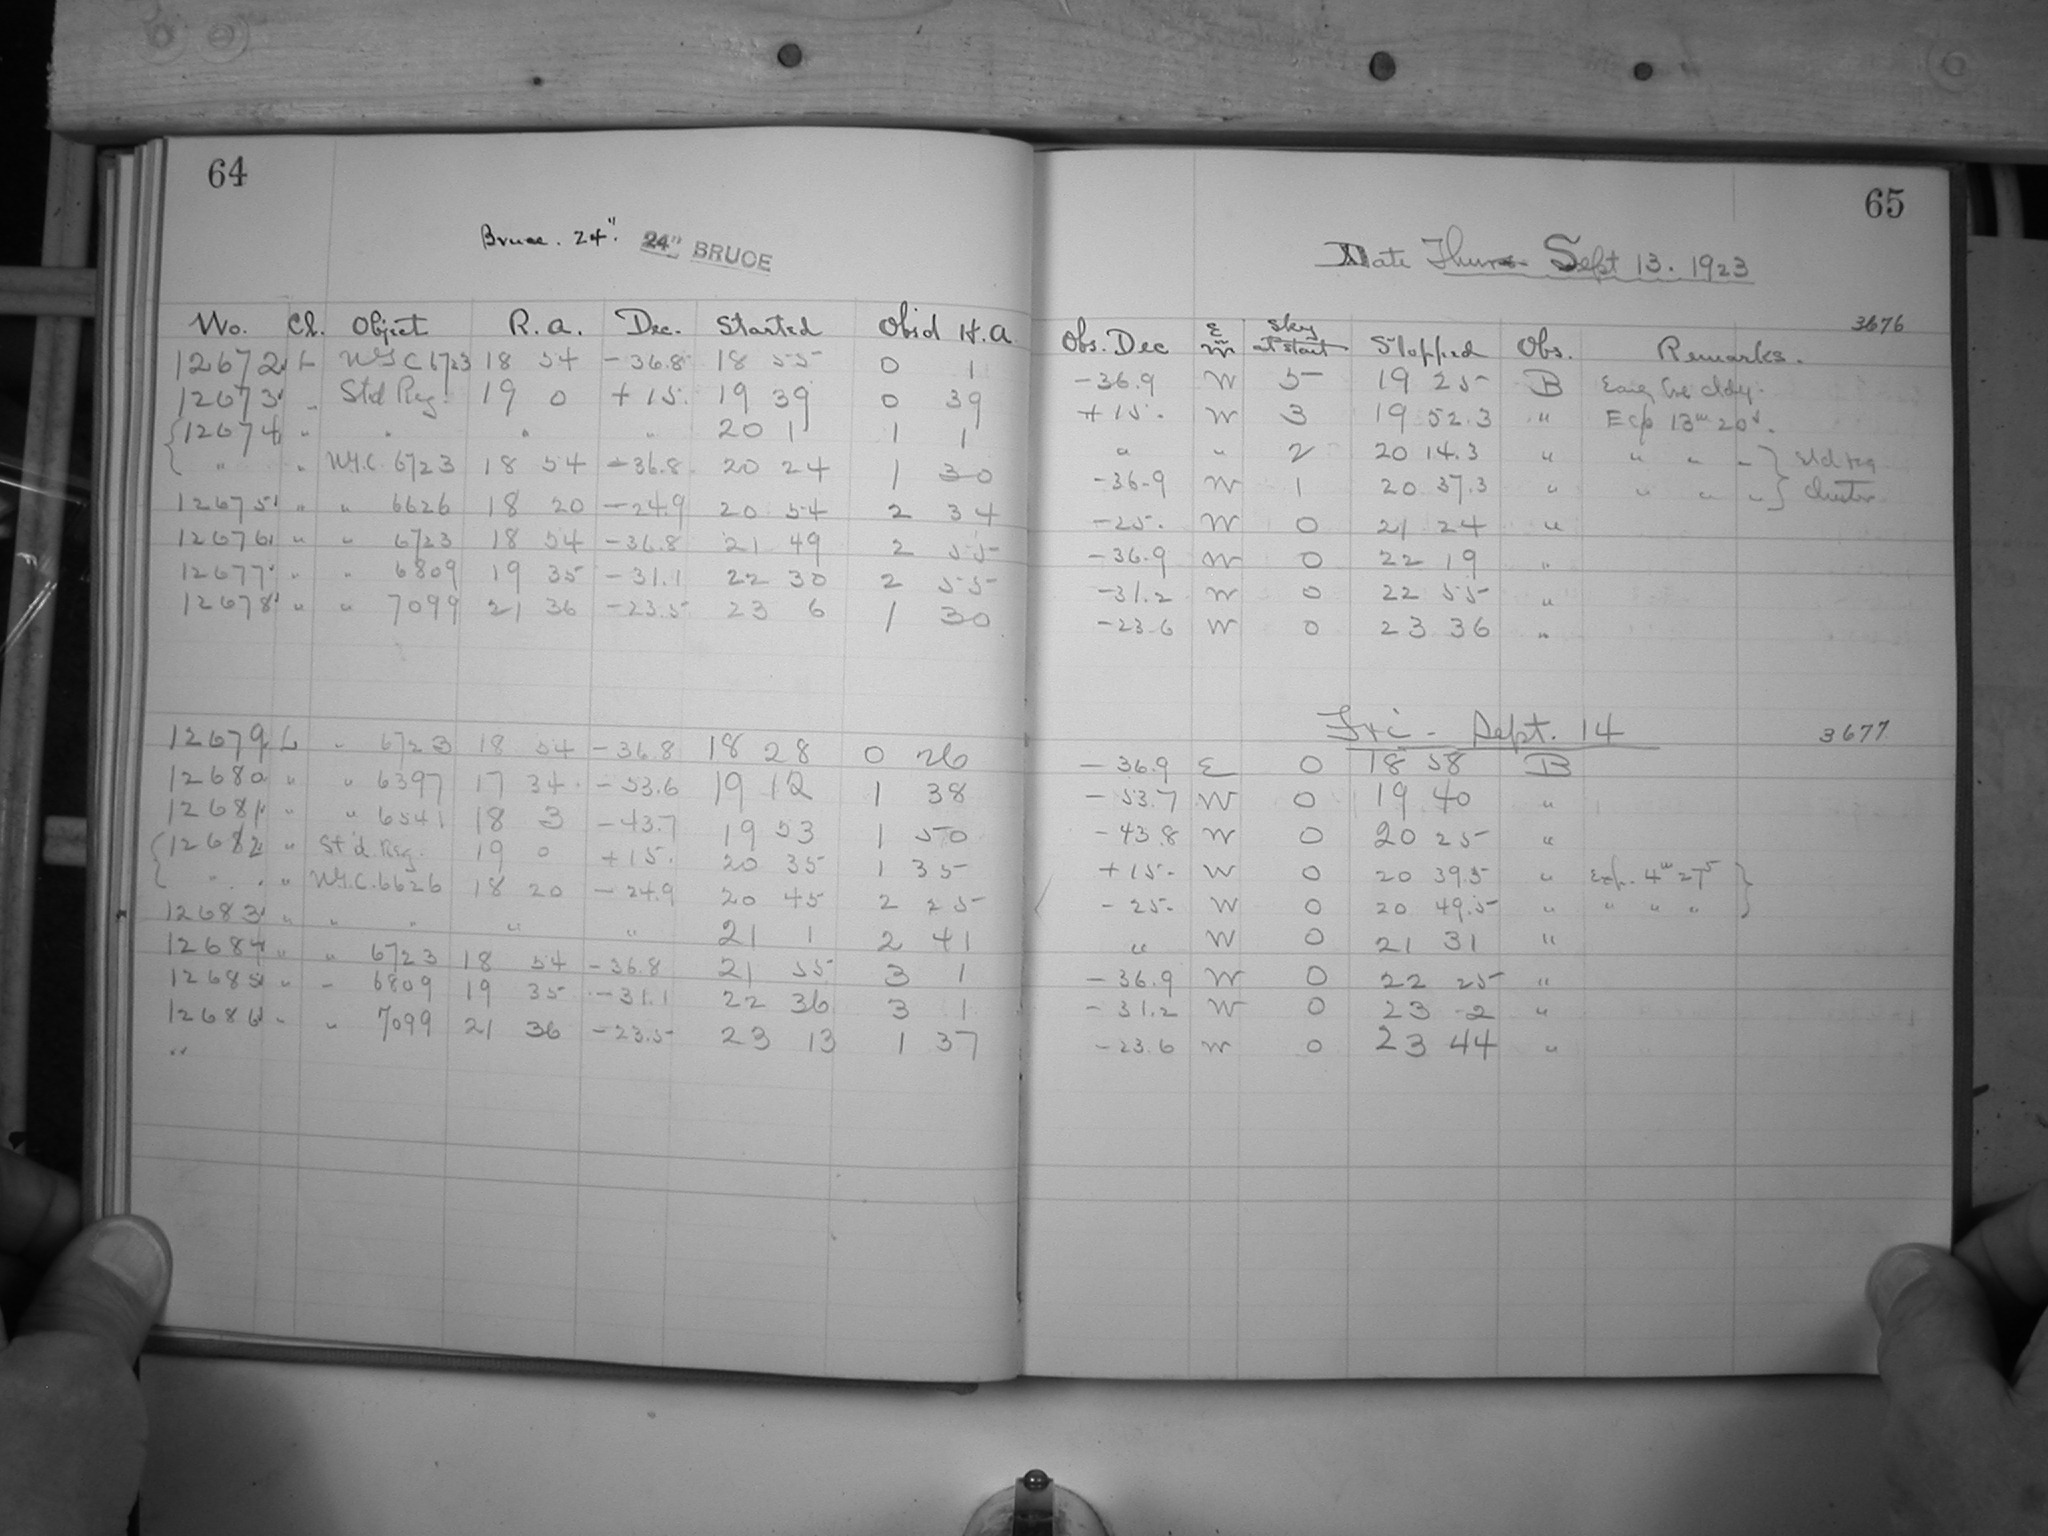 64
Bruce. 24". 24" BRUCE
No. Cl. Object R.a. Dec. Started Obsd H.A
12672 L N.G.C 6723 18 54 -36.8 18 55 0 1
12673 " Std Reg. 19 0 +15. 19 39 0 39
12674 " " " " 20 1 1 1
" " N.G.C. 6723 18 54 -36.8 20 24 1 30
12675 " " 6626 18 20 -24.9 20 54 2 34
12676 " " 6723 18 54 -36.8 21 49 2 55
12677 " " 6809 19 35 -31.1 22 30 2 55
12678 " " 7099 21 36 -23.5 23 6 1 30
12679 L " 6723 18 54 -36.8 18 28 0 26
12680 " " 6397 17 34 -53.6 19 12 1 38
12681 " " 6541 18 3 -43.7 19 53 1 50
12682 " St'd. Reg. 19 0 +15. 20 35 1 35
" " " N.G.C. 6626 18 20 -24.9 20 45 2 25
12683 " " " " " 21 1 2 41
12684 " " 6723 18 54 -36.8 21 55 3 1
12685 " " 6809 19 35 -31.1 22 36 3 1
12686 " " 7099 21 36 -23.5 23 13 1 37
"
65
Date Thurs. Sept 13. 1923
3676
Obs. Dec E W Sky at start Stopped Obs. Remarks.
-36.9 W 5 19 25 B
+15. W 3 19 52.3 " Exp 13m 20s.
" " 2 20 14.3 " " " " } std reg
-36.9 W 1 20 37.3 " " " " } cluster
-25. W 0 21 24 "
-36.9 W 0 22 19 "
-31.2 W 0 22 55 "
-23.6 W 0 23 36 "
Fri - Sept. 14 3677
-36.9 E 0 18 58 B
-53.7 W 0 19 40 "
-43.8 W 0 20 25 "
+15. W 0 20 39.5 " Exp. 4m 27s }
-25. W 0 20 49.5 " " " " }
" W 0 21 31 "
-36.9 W 0 22 25 "
-31.2 W 0 23 2 "
-23.6 W 0 23 44 "